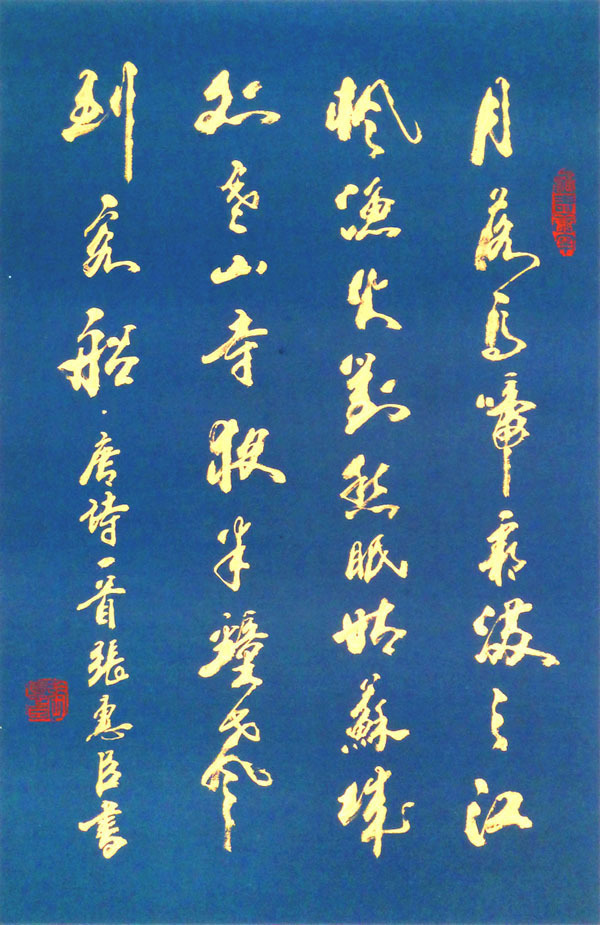 月落烏啼霜滿天江
楓漁火對愁眠姑蘇城
外寒山寺夜半鐘聲
到客船·唐詩一首張惠臣書